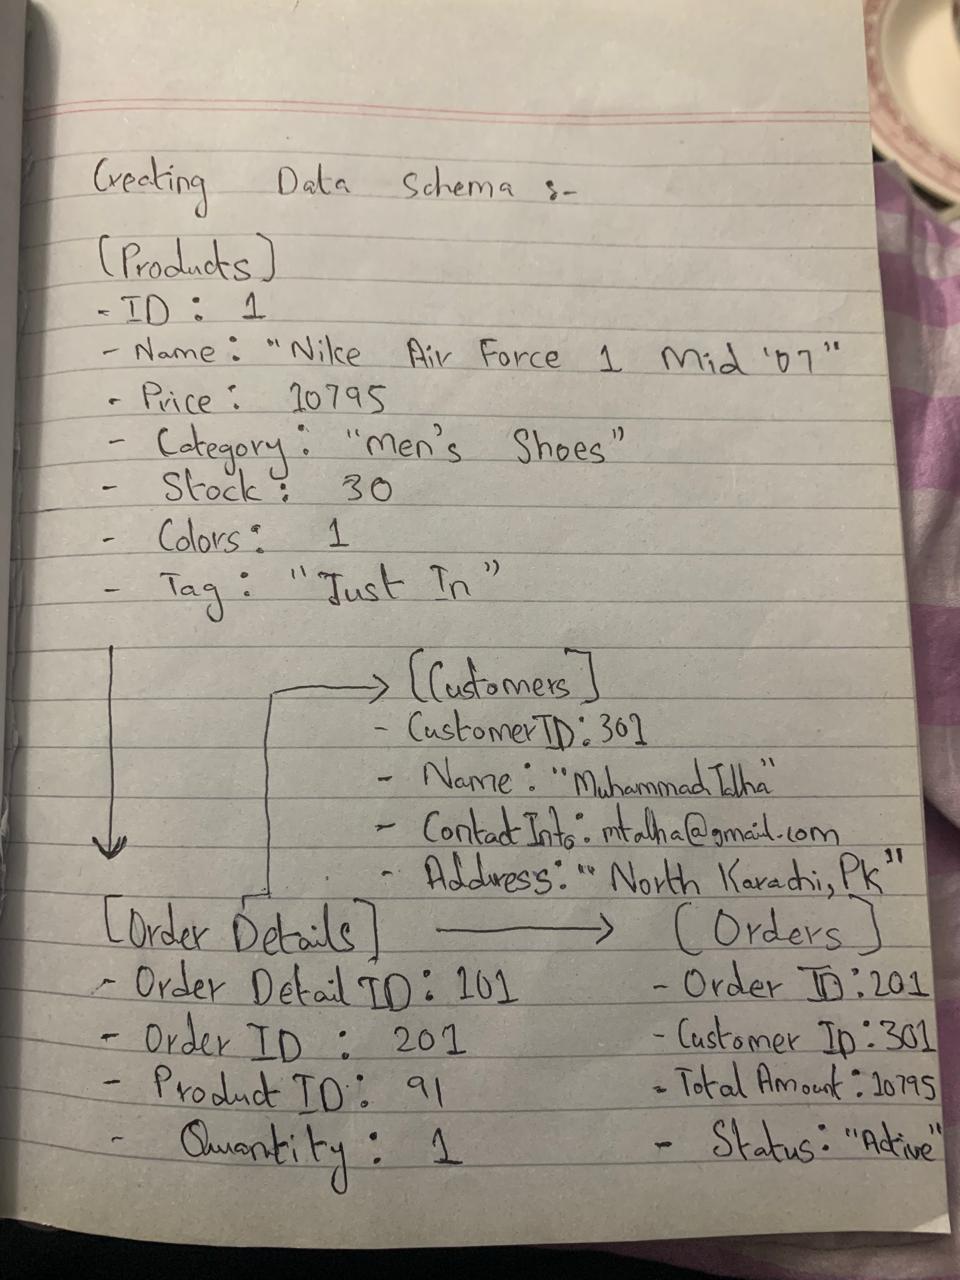 Creating Data Schema :-
[Products]
- ID : 1
- Name : "Nike Air Force 1 Mid '07"
- Price : 10795
- Category : "Men's Shoes"
- Stock : 30
- Colors : 1
- Tag : "Just In"
[Customers]
- CustomerID : 301
- Name : "Muhammad Talha"
- Contact Info : mtalha@gmail.com
- Address : "North Karachi, Pk"
[Order Details]
- Order Detail ID : 101
- Order ID : 201
- Product ID : 91
- Quantity : 1
[Orders]
- Order ID : 201
- Customer ID : 301
- Total Amount : 10795
- Status : "Active"